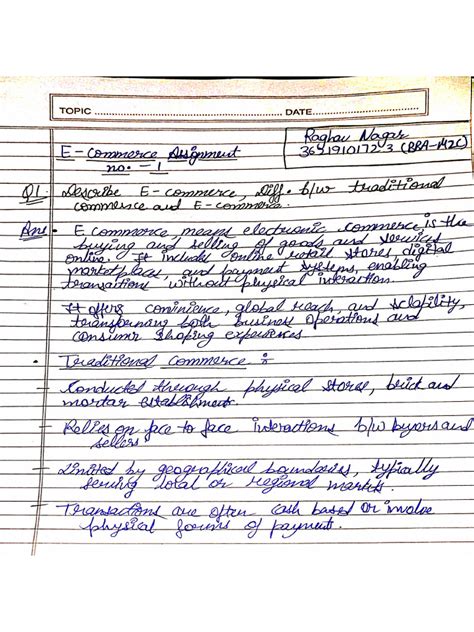 TOPIC ........ DATE........
Raghav Nagar
(BBA-M2C)
E-Commerce Assignment
no. - 1
Q1. Describe E-commerce, Diff. b/w traditional
commerce and E-commerce.
Ans • E commerce, means electronic commerce is the
buying and selling of goods and services
online. It includes online retail stores, digital
marketplaces, and payment systems, enabling
transactions without physical interaction.
It offers convinience, global reach, and
transforming both business operations and
consumer shoping experiences.
• Traditional Commerce :-
- Conducted through physical stores, brick and
mortar establishment.
- Relies on face to face interactions b/w buyers and
sellers
- Limited by geographical boundaries, typically
serving local or regional markets.
- Transactions are often cash based or involve
physical forms of payment.